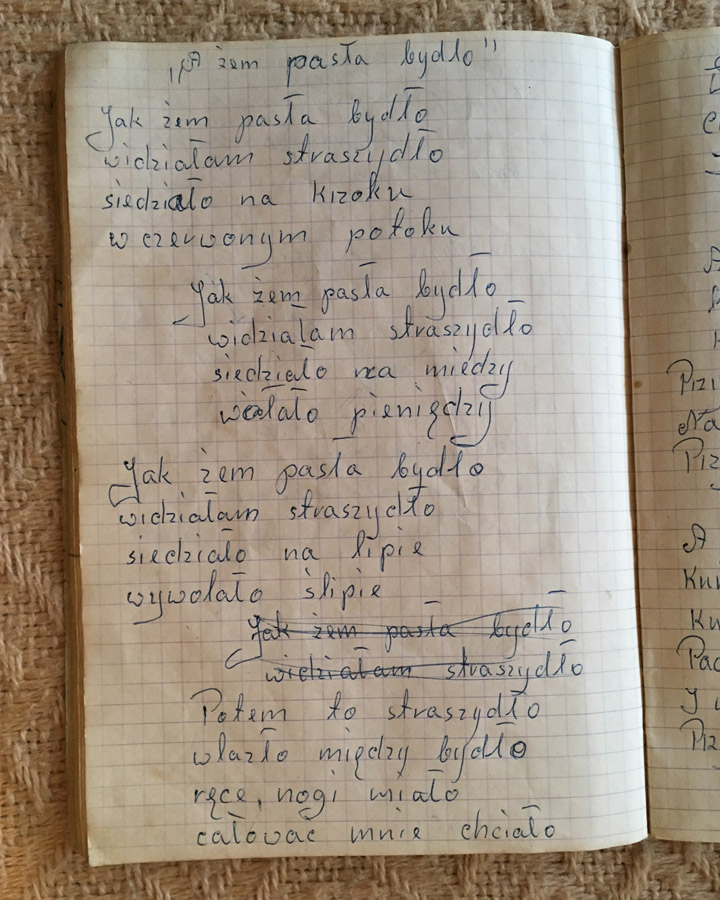 „A żem pasła bydło"
Jak żem pasła bydło
widziałam straszydło
siedziało na kroku
w czerwonym potoku
Jak żem pasła bydło
widziałam straszydło
siedziało na miedzy
wołało pieniędzy
Jak żem pasła bydło
widziałam straszydło
siedziało na lipie
wywołało ślipie
Jak żem pasła bydło
widziałam straszydło
Potem to straszydło
wlazło między bydło
ręce, nogi miało
całować mnie chciało
A
Na
A